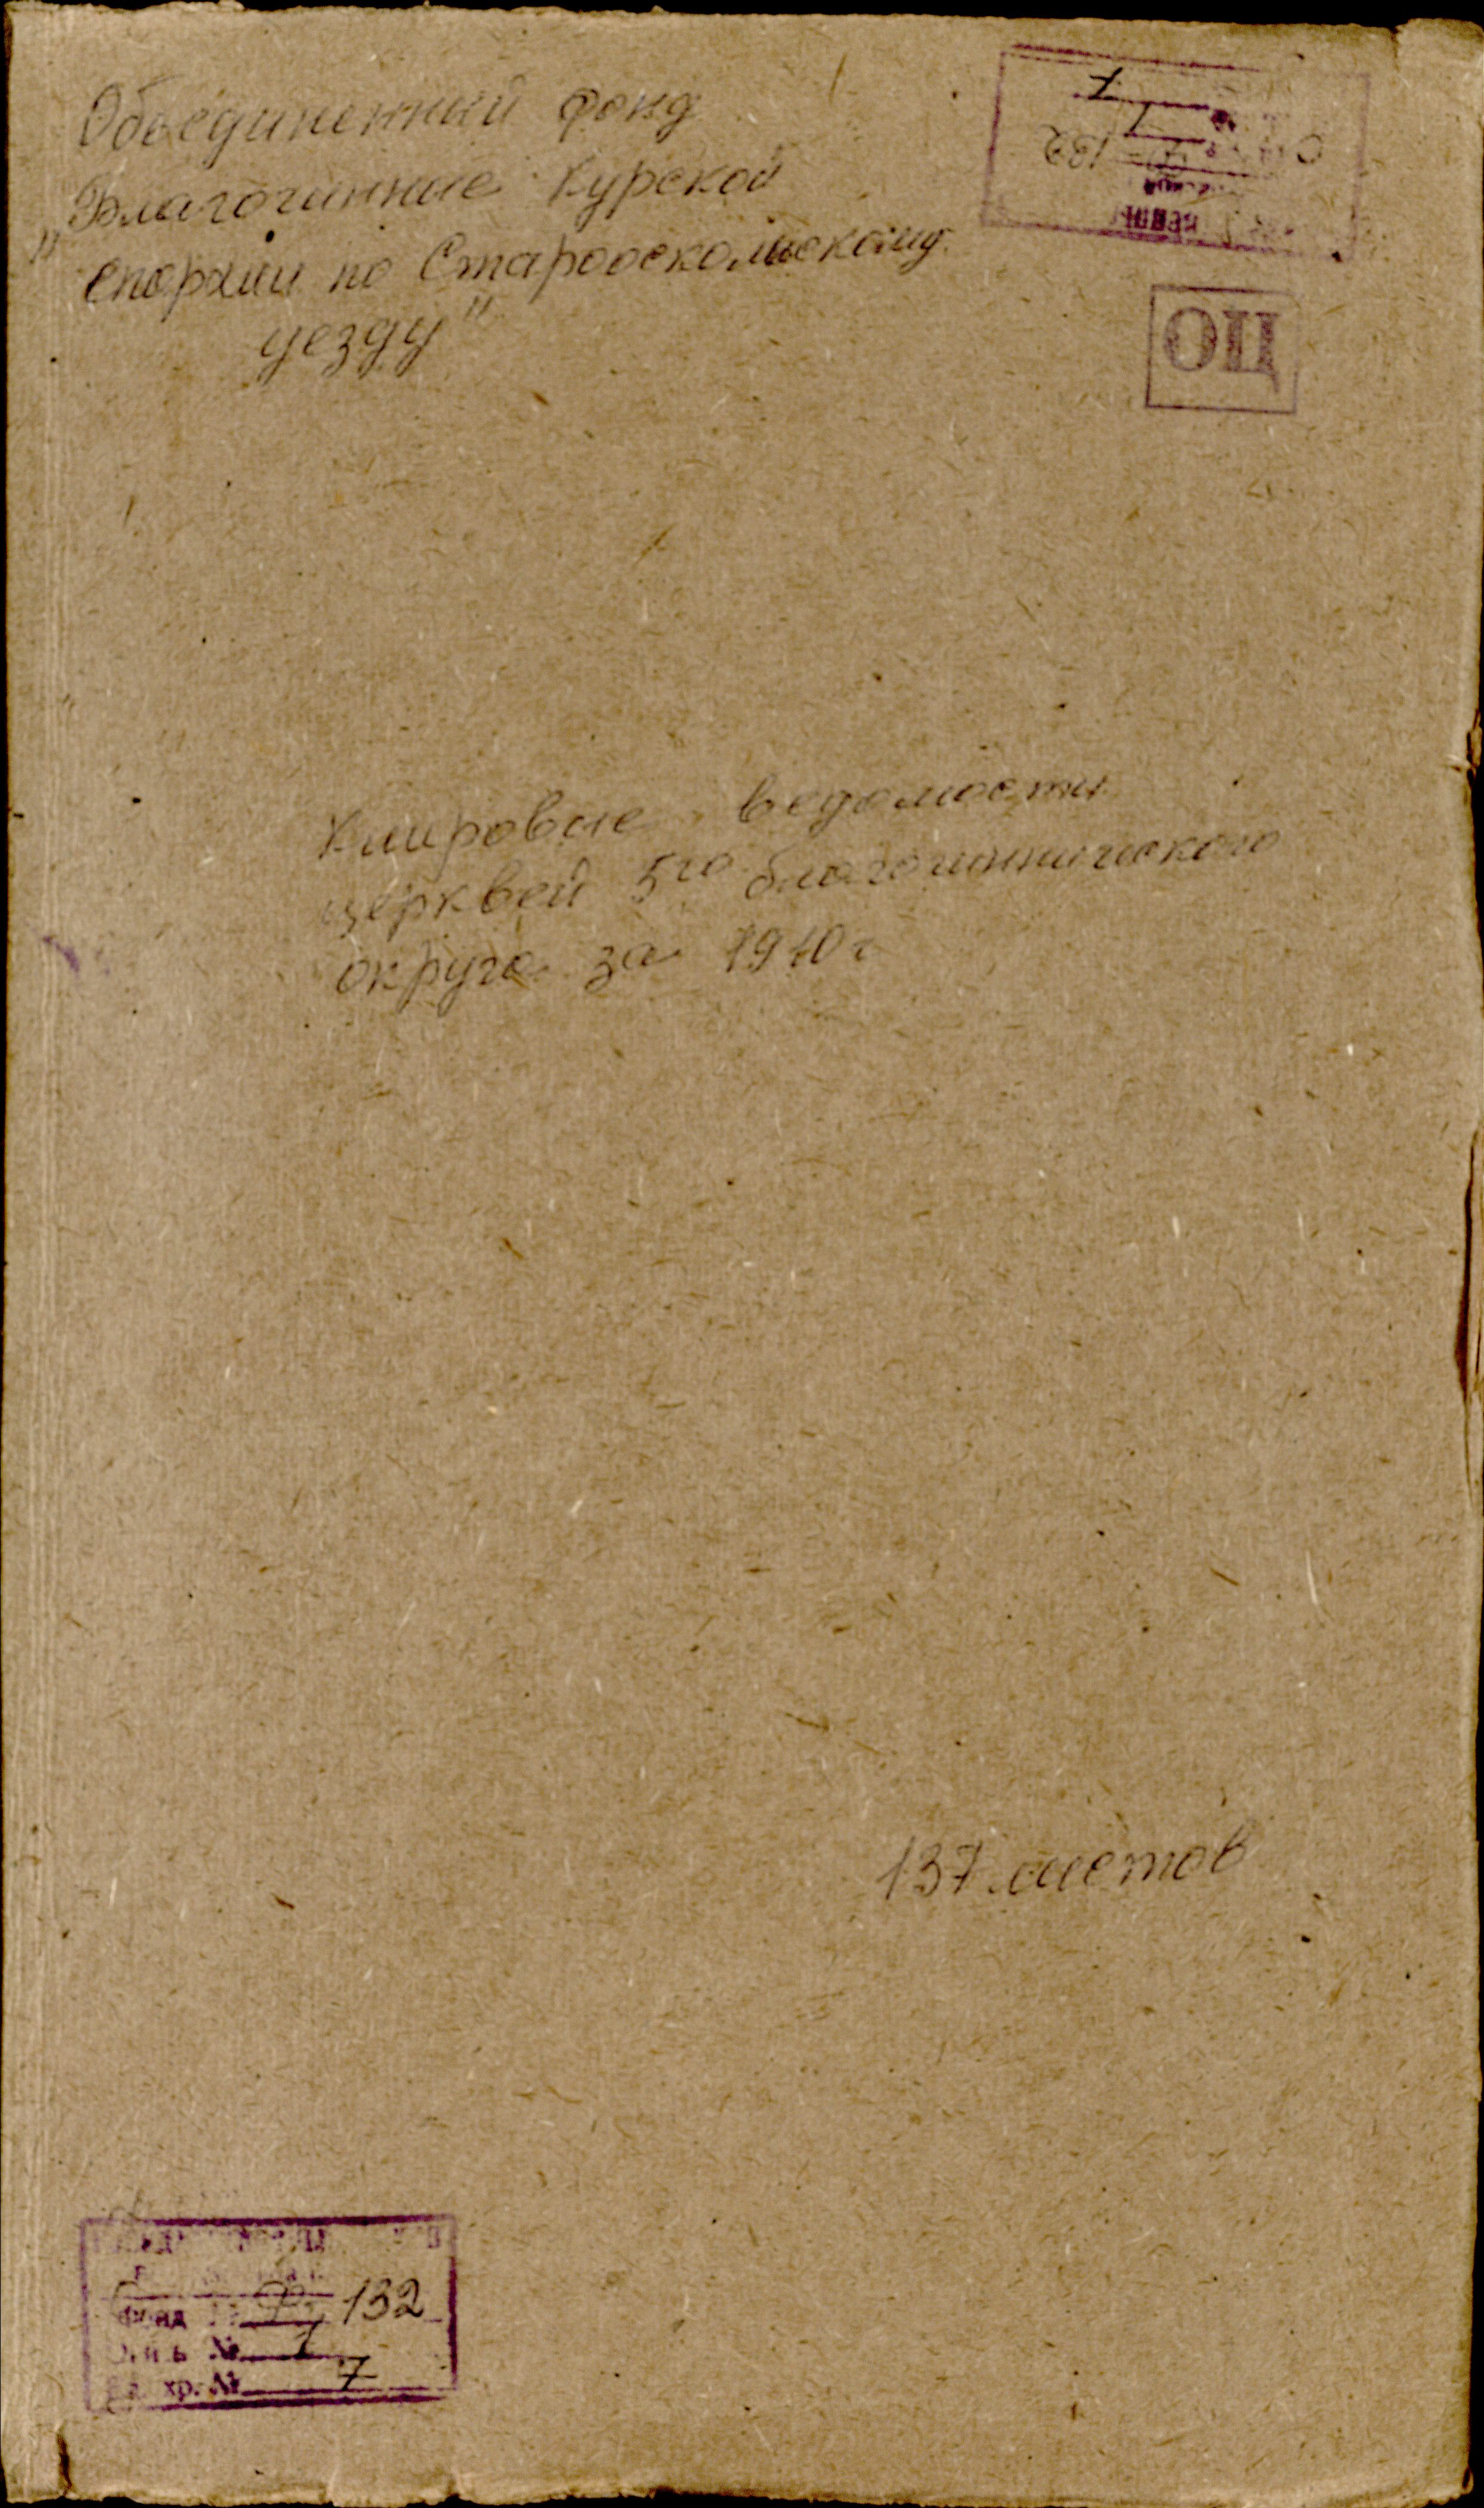 Объединенный фонд
„Благочинные Курской
епархии по Старооскольскому
уезду"
ЦО
Клировые ведомости
церквей 5го благочиннического
округа за 1910 г
137 листов
Фонд 132
№ 1
хр. № 7